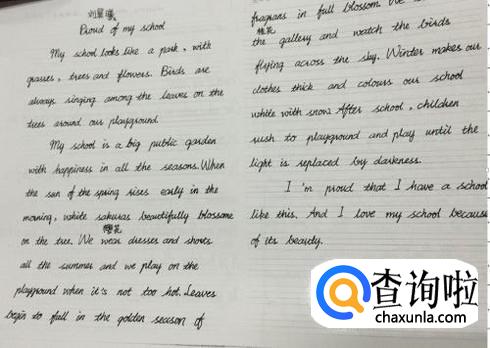 刘星璨
Proud of my school
My school looks like a park, with
grasses, trees and flowers. Birds are
always singing among the leaves on the
trees around our playground.
My school is a big public garden
with happiness in all the seasons. When
the sun of the spring rises early in the
morning, white sakuras beautifully blossome
樱花
on the tree. We wear dresses and shorts
all the summer and we play on the
playground when it's not too hot. Leaves
begin to fall in the golden season of
fragrans in full blossom. We
桂花
the gallery and watch the birds
flying across the sky. Winter makes our
clothes thick and colours our school
white with snow. After school, children
rush to playground and play until the
light is replaced by darkness.
I'm proud that I have a school
like this. And I love my school because
of its beauty.
查询啦
chaxunla.com